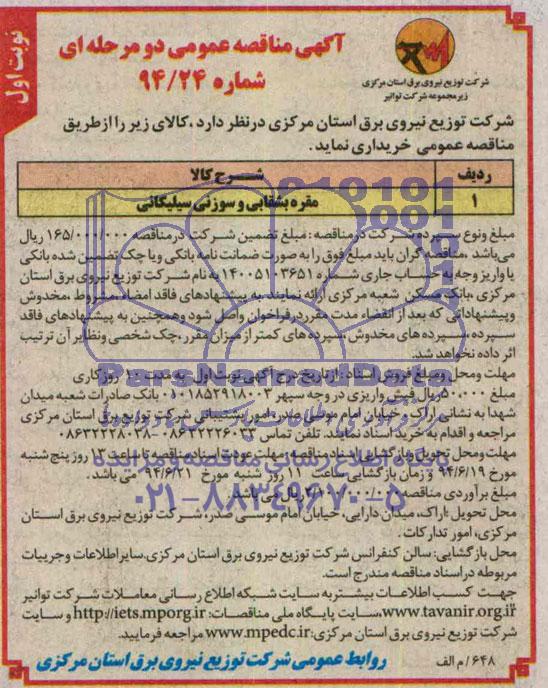 نوبت اول
آگهی مناقصه عمومی دو مرحله ای
شماره ۹۴/۲۴
شرکت توزیع نیروی برق استان مرکزی
زیرمجموعه شرکت توانیر
شرکت توزیع نیروی برق استان مرکزی درنظر دارد ،کالای زیر را ازطریق
مناقصه عمومی خریداری نماید.
ردیف شــرح کالا
۱ مقره بشقابی و سوزنی سیلیکاتی
مبلغ ونوع سپرده شرکت درمناقصه : مبلغ تضمین شرکت درمناقصه ۱۶۵/۰۰۰/۰۰۰ ریال
می‌باشد ،مناقصه گران باید مبلغ فوق را به صورت ضمانت نامه بانکی ویا چک تضمین شده بانکی
یا واریز وجه به حساب جاری شماره ۱۴۰۰۵۱۰۳۶۵۱ به نام شرکت توزیع نیروی برق استان
مرکزی ،بانک مسکن شعبه مرکزی ارائه نمایند.به پیشنهادهای فاقد امضاء ،مشروط ،مخدوش
وپیشنهاداتی که بعد از انقضاء مدت مقرردرفراخوان واصل شود وهمچنین به پیشنهادهای فاقد
سپرده سپرده های مخدوش ،سپرده های کمتر از میزان مقرر ،چک شخصی ونظایر آن ترتیب
اثر داده نخواهد شد.
مهلت ومحل ومبلغ فروش اسناد : از تاریخ درج آگهی نوبت اول به مدت ۱۰ روز کاری
مبلغ ۵۰۰۰۰۰ریال فیش واریزی در وجه سپهر ۰۱۰۱۸۵۲۹۱۸۰۰۳ بانک صادرات شعبه میدان
شهدا به نشانی اراک و خیابان امام موسی صدر، امور پشتیبانی شرکت توزیع برق استان مرکزی
مراجعه و اقدام به خرید اسناد نمایند. تلفن تماس ۰۸۶۳۲۲۲۶۰۳۳ -۰۸۶۳۲۲۲۸۰۳۸
مهلت ومحل تحویل وبازگشایی اسناد مناقصه:مهلت عودت اسناد مناقصه تا ساعت ۱۳ روز پنج شنبه
مورخ ۹۴/۶/۱۹ و زمان بازگشایی ساعت ۱۱ روز شنبه مورخ ۹۴/۶/۲۱ می باشد .
مبلغ برآوردی مناقصه ریال می باشد
محل تحویل :اراک، میدان دارایی، خیابان امام موسی صدر، شرکت توزیع نیروی برق استان
مرکزی، امور تدارکات .
محل بازگشایی: سالن کنفرانس شرکت توزیع نیروی برق استان مرکزی.سایراطلاعات وجزییات
مربوطه دراسناد مناقصه مندرج است.
جهت کسب اطلاعات بیشتربه سایت شبکه اطلاع رسانی معاملات شرکت توانیر
www.tavanir.org.ir،سایت پایگاه ملی مناقصات: http://iets.mporg.ir و سایت
شرکت توزیع نیروی برق استان مرکزی:www.mpedc.ir مراجعه فرمایید.
۶۴۸/م الف
روابط عمومی شرکت توزیع نیروی برق استان مرکزی
ParsNamadData
پایگاه اطلاع رسانی مناقصه و مزایده
۰۲۱-۸۸۳۴۹۶۷۰-۵